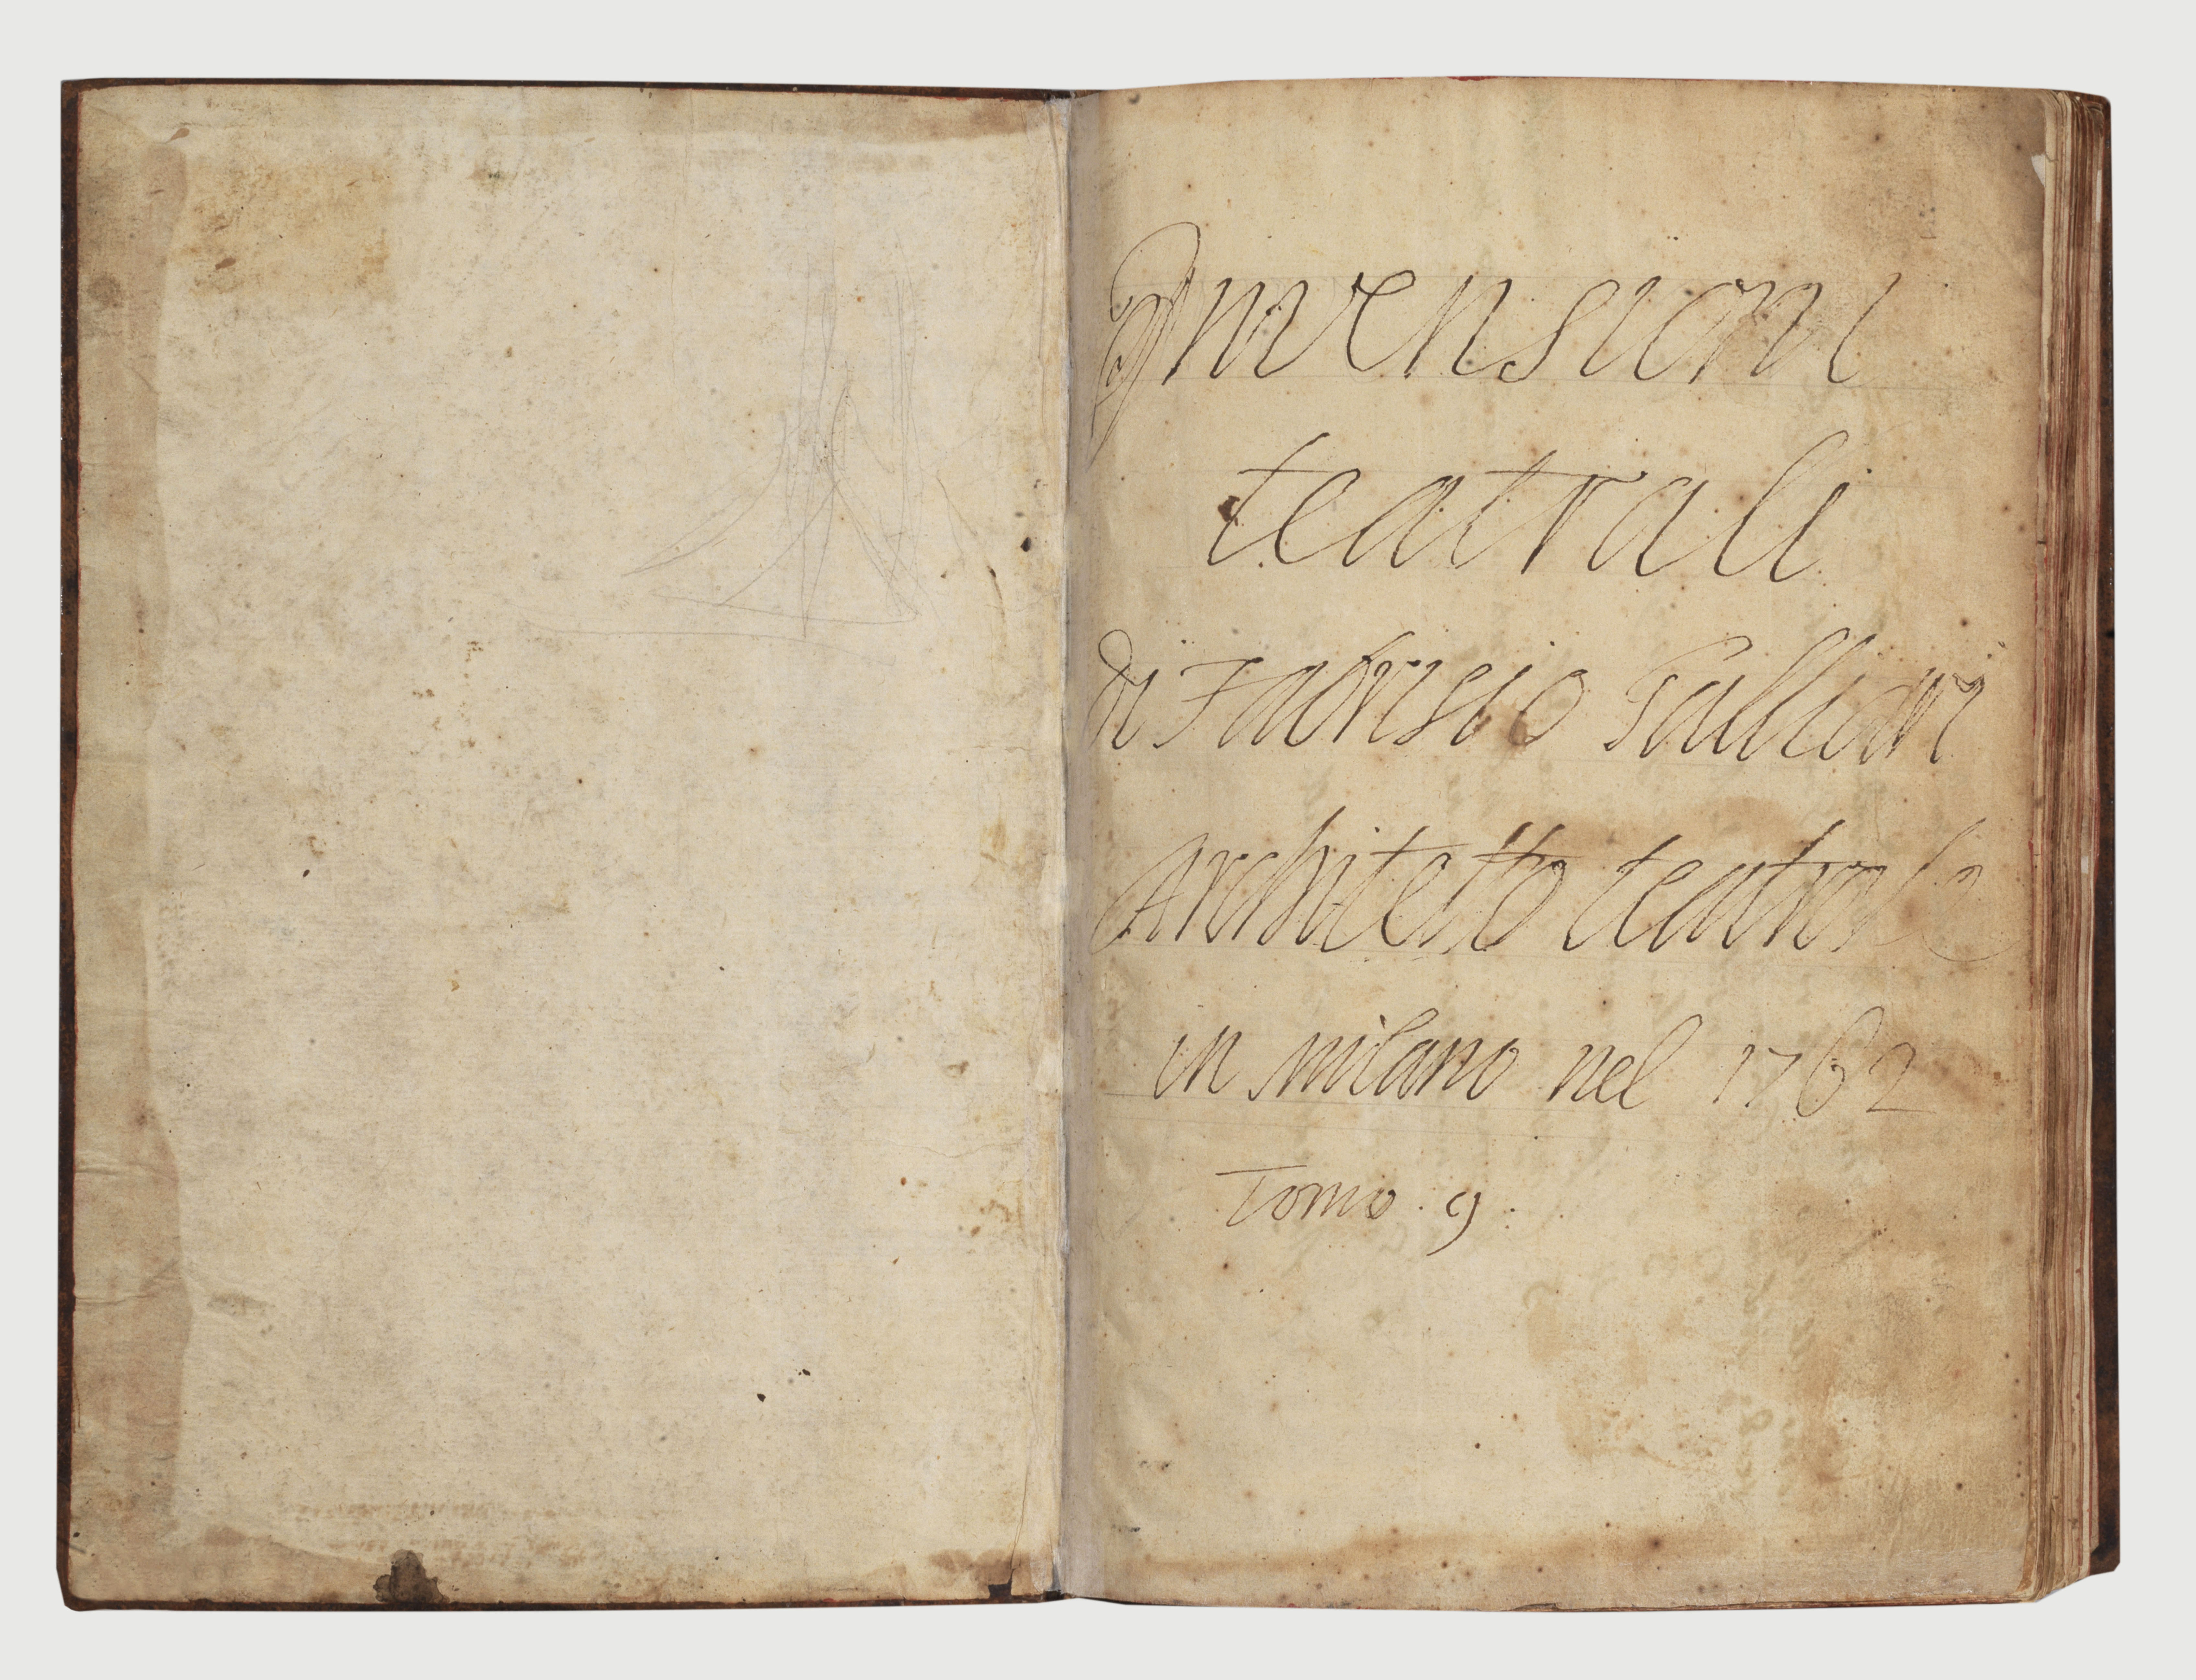 Invensioni
teatrali
di Fabrisio Galliari
Architetto teatrale
in milano nel 1762
Tomo . 9 .